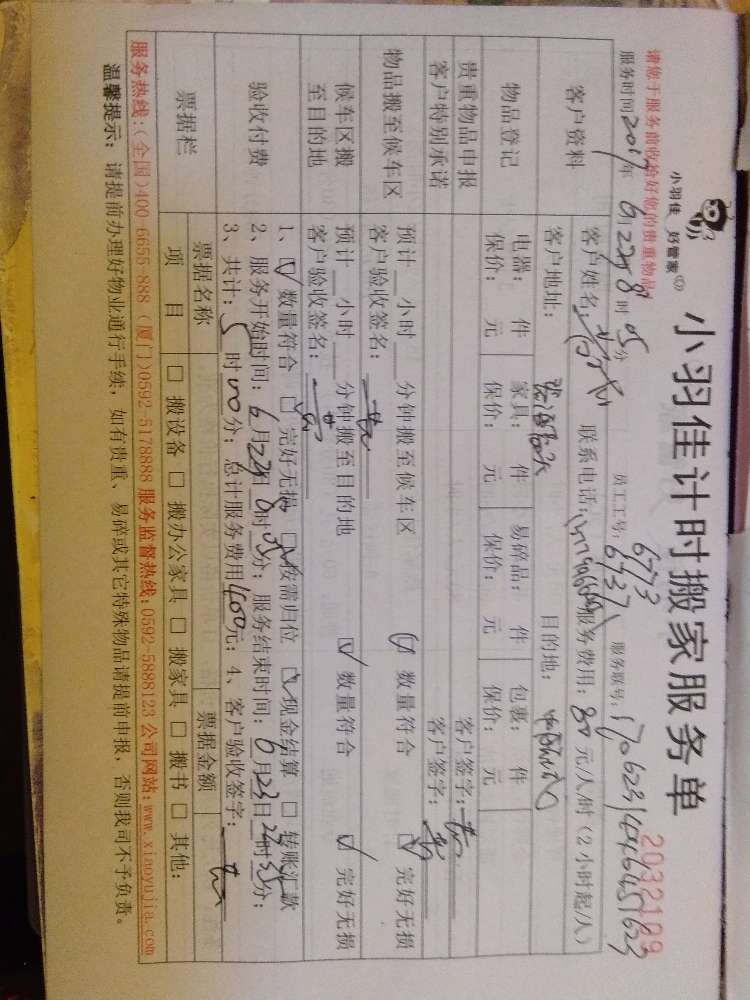 小羽佳 好管家
小羽佳计时搬家服务单
2032109
请您于服务前收拾好您的贵重物品
服务时间2017年6月22日8时05分 员工工号: 6773 6737 服务联号:
客户资料 客户姓名: 联系电话: 服务费用: 80元/人/时(2小时起/人)
客户地址: 目的地:
物品登记 电器: 件 家具: 件 易碎品: 件 包裹: 件
保价: 元 保价: 元 保价: 元 保价: 元
贵重物品申报 客户签字:
客户特别承诺 客户签字:
物品搬至候车区 预计__小时__分钟搬至候车区 ☑ 数量符合 ☑ 完好无损
客户验收签名:
候车区搬至目的地 预计__小时__分钟搬至目的地 ☑ 数量符合 ☑ 完好无损
客户验收签名:
验收付费 1、☑ 数量符合 ☑ 完好无损 ☑ 按需归位 ☑ 现金结算 □ 转账汇款
2、服务开始时间: 6月 日 时 分; 服务结束时间: 6月 日 时 分;
3、共计: 5时00分; 总计服务费用400元; 4、客户验收签字:
票据栏 票据名称 票据金额
项 目 □ 搬设备 □ 搬办公家具 □ 搬家具 □ 搬书 □ 其他:
服务热线:(全国)400-6655-888 (厦门)0592-5178888 服务监督热线:0592-5888123 公司网站:www.xiaoyujia.com
温馨提示: 请提前办理好物业通行手续, 如有贵重、易碎或其它特殊物品请提前申报, 否则我司不予负责。